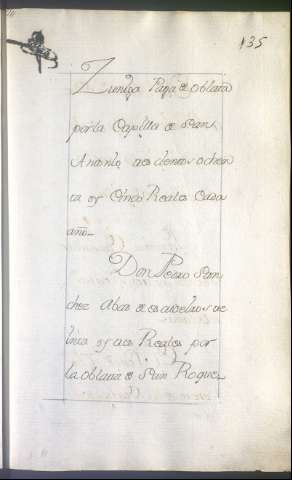 135
Zuniga Paga de oblata
por la Capilla de San
Antonio docientos ochen
ta y Cinco Reales Cada
año
Don Pedro San
chez Abad
y dos Reales por
la oblata de San Roque